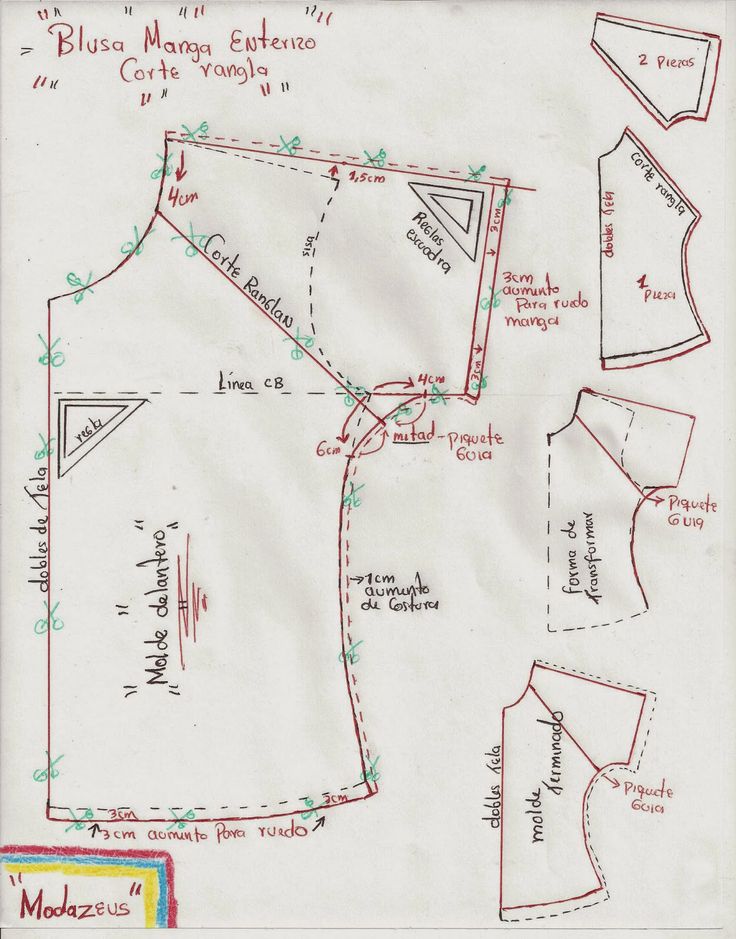 Blusa Manga Enterizo
Corte rangla
2 Piezas
4cm
1,5cm
Reglas
escuadra
3cm
Corte rangla
dobles tela
1
Pieza
sisa
Corte Ranglan
3cm
aumento
Para ruedo
manga
3cm
Línea CB
4cm
regla
6cm
mitad-piquete
Guia
Piquete
Guia
forma de
Transformar
dobles de Tela
"Molde delantero"
1cm
aumento
de Costura
dobles Tela
molde
Terminado
Piquete
Guia
3cm
3cm
3cm aumento Para ruedo
"Modazeus"